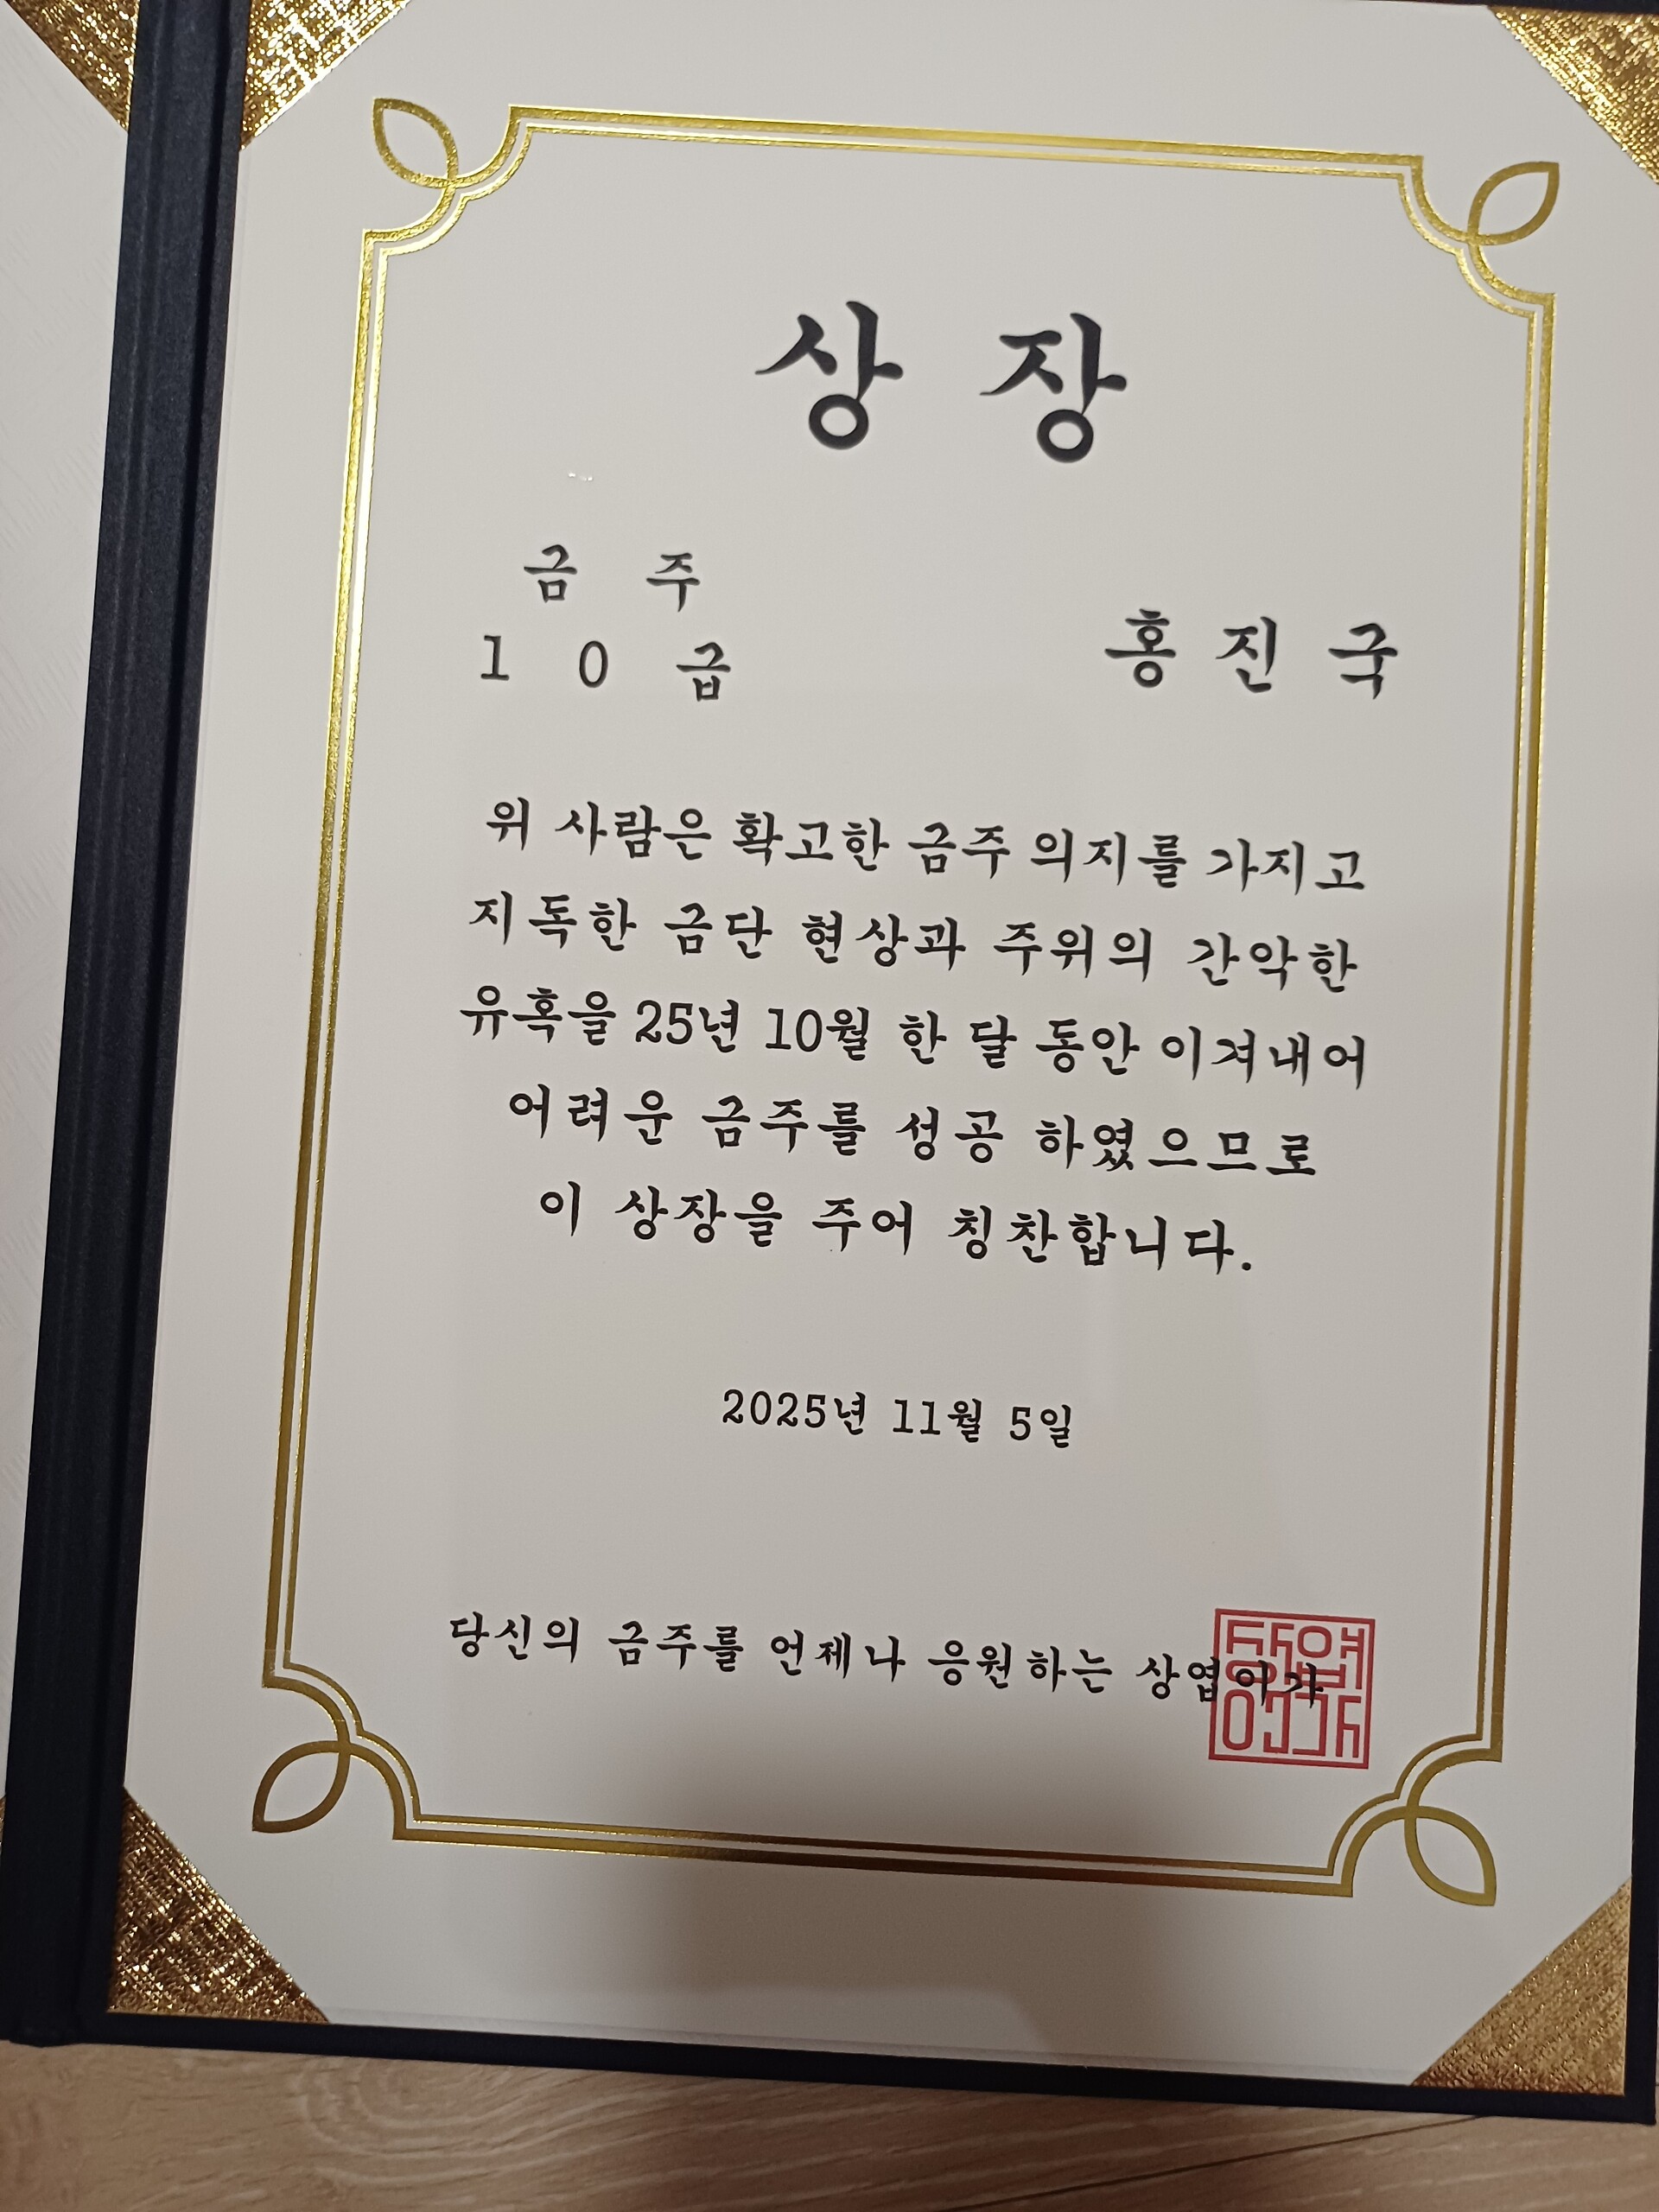 상 장
금 주
1 0 급
홍 진 국
위 사람은 확고한 금주 의지를 가지고
지독한 금단 현상과 주위의 간악한
유혹을 25년 10월 한 달 동안 이겨내어
어려운 금주를 성공 하였으므로
이 상장을 주어 칭찬합니다.
2025년 11월 5일
당신의 금주를 언제나 응원하는 상엽이가